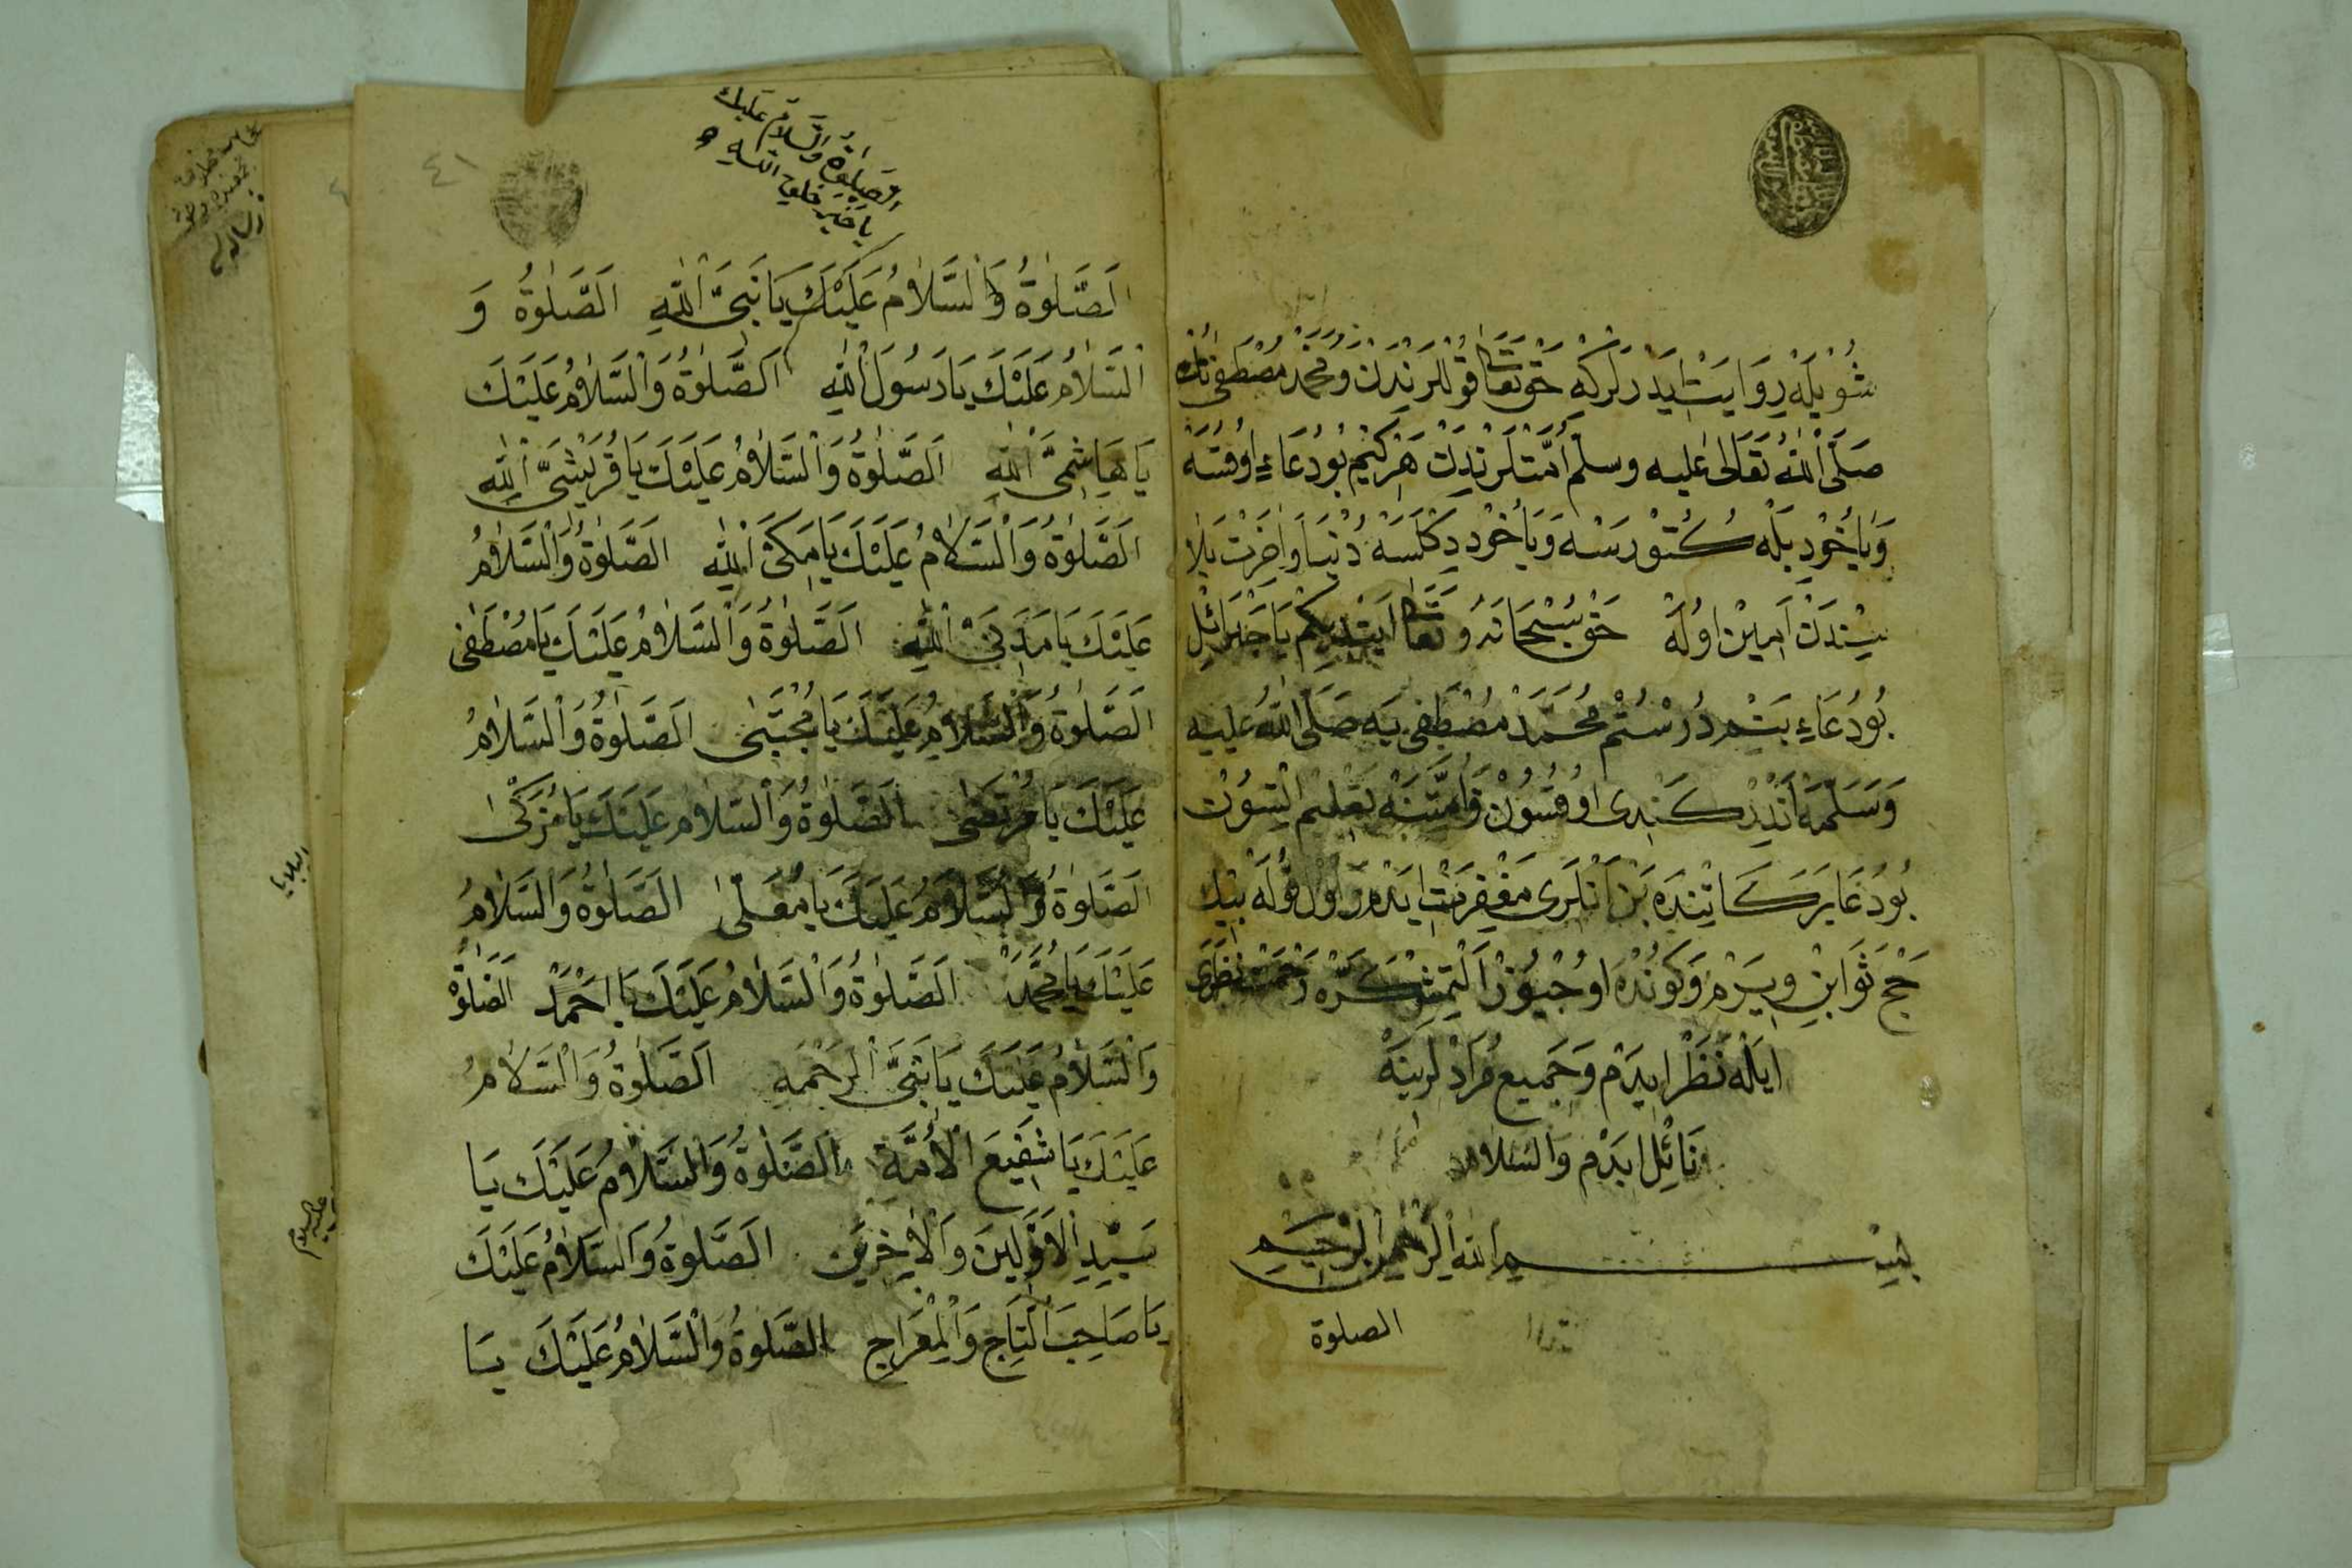 شُويْلَه رِوَايَتْ ايدَرلَركِه حَقّ تَعَالَى قُوللَرنْدَنْ وَمُحَمَّدْ مُصْطَفٰىنُكْ
صَلَّى اللهُ تَعَالٰى عليه وسلم اُمَّتْلَرِنْدَنْ هَرْكِيمْ بُو دُعَاءِ اوُقُسَه
وَيَاخُودْ بِلَه كُتُورسَه وَيَاخُودْ دِكْلَسَه دُنْيَا وَاٰخِرَتْ بَلَا
سِنْدَنْ اَمِينْ اوُلَه حَقّ سُبْحَانَهُ وَتَعَالَى ايتديكِم يَا جَبْرَائِلْ
بُو دُعَاءِ بَتِمْ دُرسْتُمْ مُحَمَّدْ مُصْطَفٰى يَه صَلَّى اللهُ عليه
وَسَلَّمَه كَنْدِى اوُقُسُونْ وَاُمَّتِنَه تَعْلِيم اِتْسُونْ
بُو دُعَا بَرَكَاتِنْدَه بَنْ اَنْلَرِى مَغْفِرَتْ ايدَرم وَاوُل قُولَه بِيكْ
حَجّ ثَوَابِنْ وِيرَرْم وَكُونْدَه اوُچْيُوزْ اَلْتمِش كَرَّه رَحْمَتْ نَظَرِى
ايلَه نَظَرْ ايدَرم وَجَمِيع مُرَادْلَرِينَه
نَائِل ايدَرم وَالسَّلَام
بِسْمِ اللهِ الرَّحْمٰنِ الرَّحِيمِ
الصلوة
٤١
الصَّلوةُ وَالسَّلَامُ عَلَيْكَ
يَا خَيْرَ خَلْقِ اللهِ
اَلصَّلٰوةُ وَالسَّلَامُ عَلَيْكَ يَا نَبِىَّ اللهِ اَلصَّلٰوةُ وَ
السَّلَامُ عَلَيْكَ يَا رَسُولَ اللهِ اَلصَّلٰوةُ وَالسَّلَامُ عَلَيْكَ
يَا هَاشِمِىَّ اللهِ اَلصَّلٰوةُ وَالسَّلَامُ عَلَيْكَ يَا قُرَيْشِىَّ اللهِ
اَلصَّلٰوةُ وَالسَّلَامُ عَلَيْكَ يَا مَكِّىَّ اللهِ اَلصَّلٰوةُ وَالسَّلَامُ
عَلَيْكَ يَا مَدَنِىَّ اللهِ اَلصَّلٰوةُ وَالسَّلَامُ عَلَيْكَ يَا مُصْطَفٰى
اَلصَّلٰوةُ وَالسَّلَامُ عَلَيْكَ يَا مُجْتَبٰى اَلصَّلٰوةُ وَالسَّلَامُ
عَلَيْكَ يَا مُرْتَضٰى اَلصَّلٰوةُ وَالسَّلَامُ عَلَيْكَ يَا مُزَكّٰى
اَلصَّلٰوةُ وَالسَّلَامُ عَلَيْكَ يَا مُعَلّٰى اَلصَّلٰوةُ وَالسَّلَامُ
عَلَيْكَ يَا مُحَمَّدْ اَلصَّلٰوةُ وَالسَّلَامُ عَلَيْكَ يَا اَحْمَدْ اَلصَّلٰوةُ
وَالسَّلَامُ عَلَيْكَ يَا نَبِىَّ الرَّحْمَةِ اَلصَّلٰوةُ وَالسَّلَامُ
عَلَيْكَ يَا شَفِيعَ الْاُمَّةِ اَلصَّلٰوةُ وَالسَّلَامُ عَلَيْكَ يَا
سَيِّدِ الْاَوَّلِينَ وَالْاٰخِرِينَ اَلصَّلٰوةُ وَالسَّلَامُ عَلَيْكَ
يَا صَاحِبَ التَّاجِ وَالْمِعْرَاجِ اَلصَّلٰوةُ وَالسَّلَامُ عَلَيْكَ يَا
عليه السلام